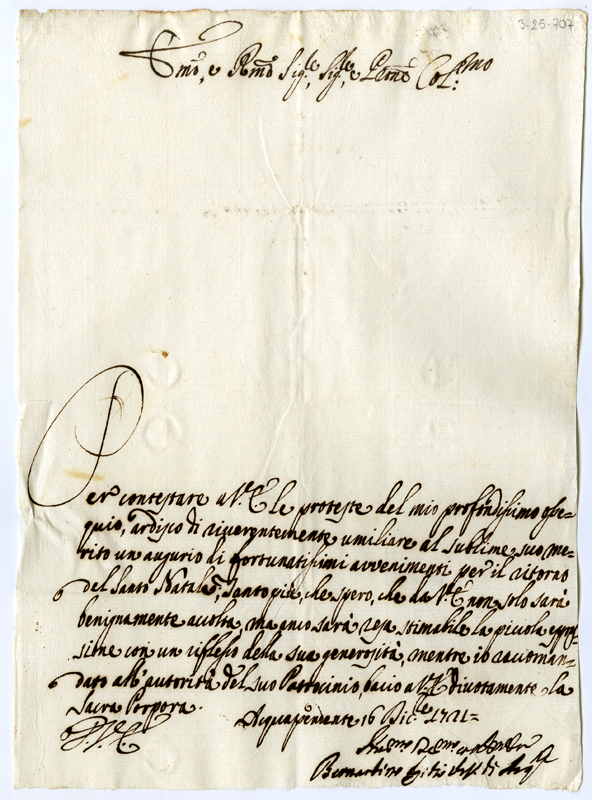 3-25-707
Emo, e Rmo Sig.re, Sig.re, e Prone Col.mo
Per contestare a V.E. le proteste del mio profondissimo osse=
quio, ardisco di riverentemente umiliare al sublime suo me=
rito un augurio di fortunatissimi avvenimenti per il ritorno
del Santo Natale, tanto più, che spero, che da V.E. non solo sarà
benignamente accolta, ma anco sarà resa stimabile la piccola espres=
sione con un riflesso della sua generosità, mentre io raccoman=
dato all'autorità del suo Patrocinio, bacio a V.E. divotamente la
Sacra Porpora.
Acquapendente 16 Dic.e 1721=
Bernardino di